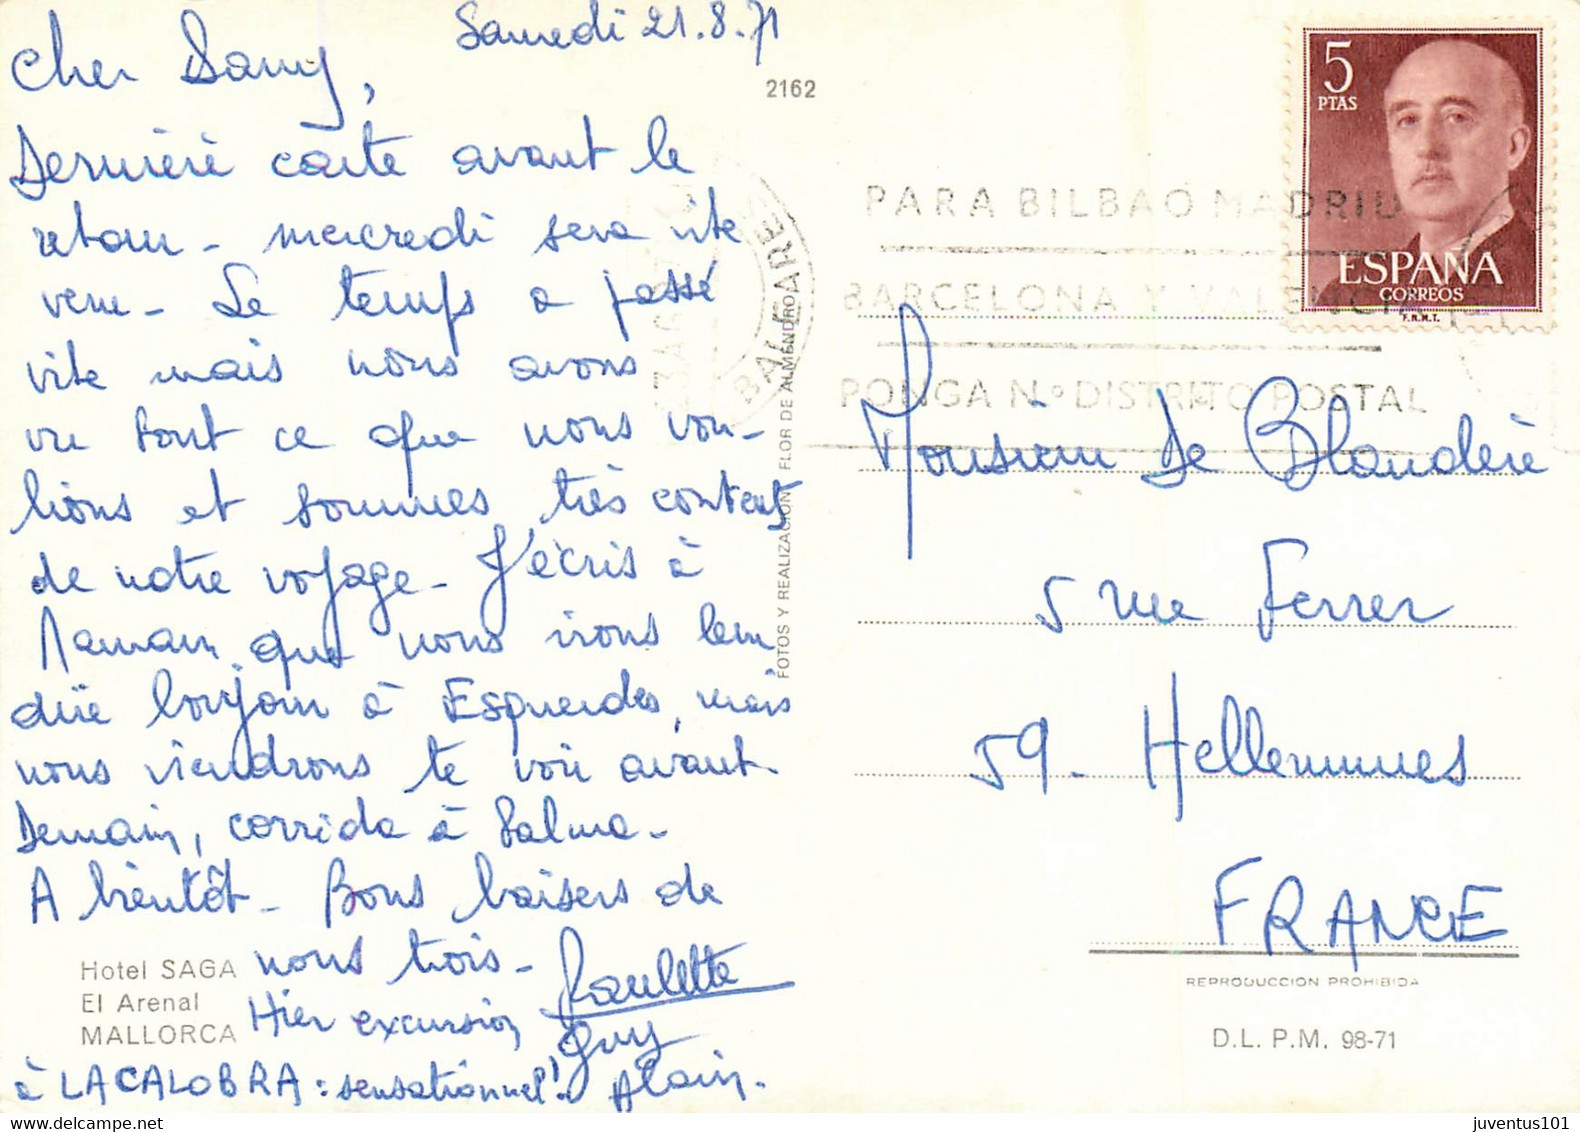 Samedi 21.8.71
Cher Samy,
Dernière carte avant le
retour - mercredi sera vite
venu - Le temps a passé
vite mais nous avons
vu tout ce que nous vou-
lions et sommes très contents
de notre voyage - J'écris à
Maman que nous irons lun
di à Esquerdes, mais
nous viendrons te voir avant
Demain, corrida à Palma -
A bientôt - Bons baisers de
nous trois - Paulette
Hier excursion Guy
à LA CALOBRA : sensationnel! Alain.
Hotel SAGA
El Arenal
MALLORCA
2162
FOTOS Y REALIZACION FLOR DE ALMENDRO
BALEARES
PARA BILBAO MADRID
BARCELONA Y VALENCIA
PONGA Nº DISTRITO POSTAL
5
PTAS
ESPAÑA
CORREOS
F.N.M.T.
Monsieur De Blandère
5 rue Ferrer
59 - Hellemmes
FRANCE
REPRODUCCION PROHIBIDA
D.L. P.M. 98-71
juventus101
delcampe.net